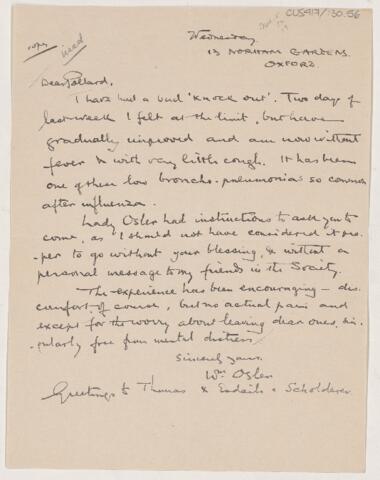 CUS417/:30.56
copy
used
Wednesday
13 NORHAM GARDENS.
OXFORD.
Dear Pollard,
I have had a bad 'knock out'. Two days of
last week I felt at the limit, but have
gradually improved and am now without
fever & with very little cough. It has been
one of these low broncho-pneumonias so common
after influenza.
Lady Osler had instructions to ask you to
come, as I should not have considered it pro-
-per to go without your blessing, & without a
personal message to my friends in the Society.
The experience has been encouraging – dis-
comfort of course, but no actual pain and
except for the worry about leaving dear ones, sin-
-gularly free from mental distress
Sincerely yours.
Wm Osler
Greetings to Thomas & Esdaile & Scholderer